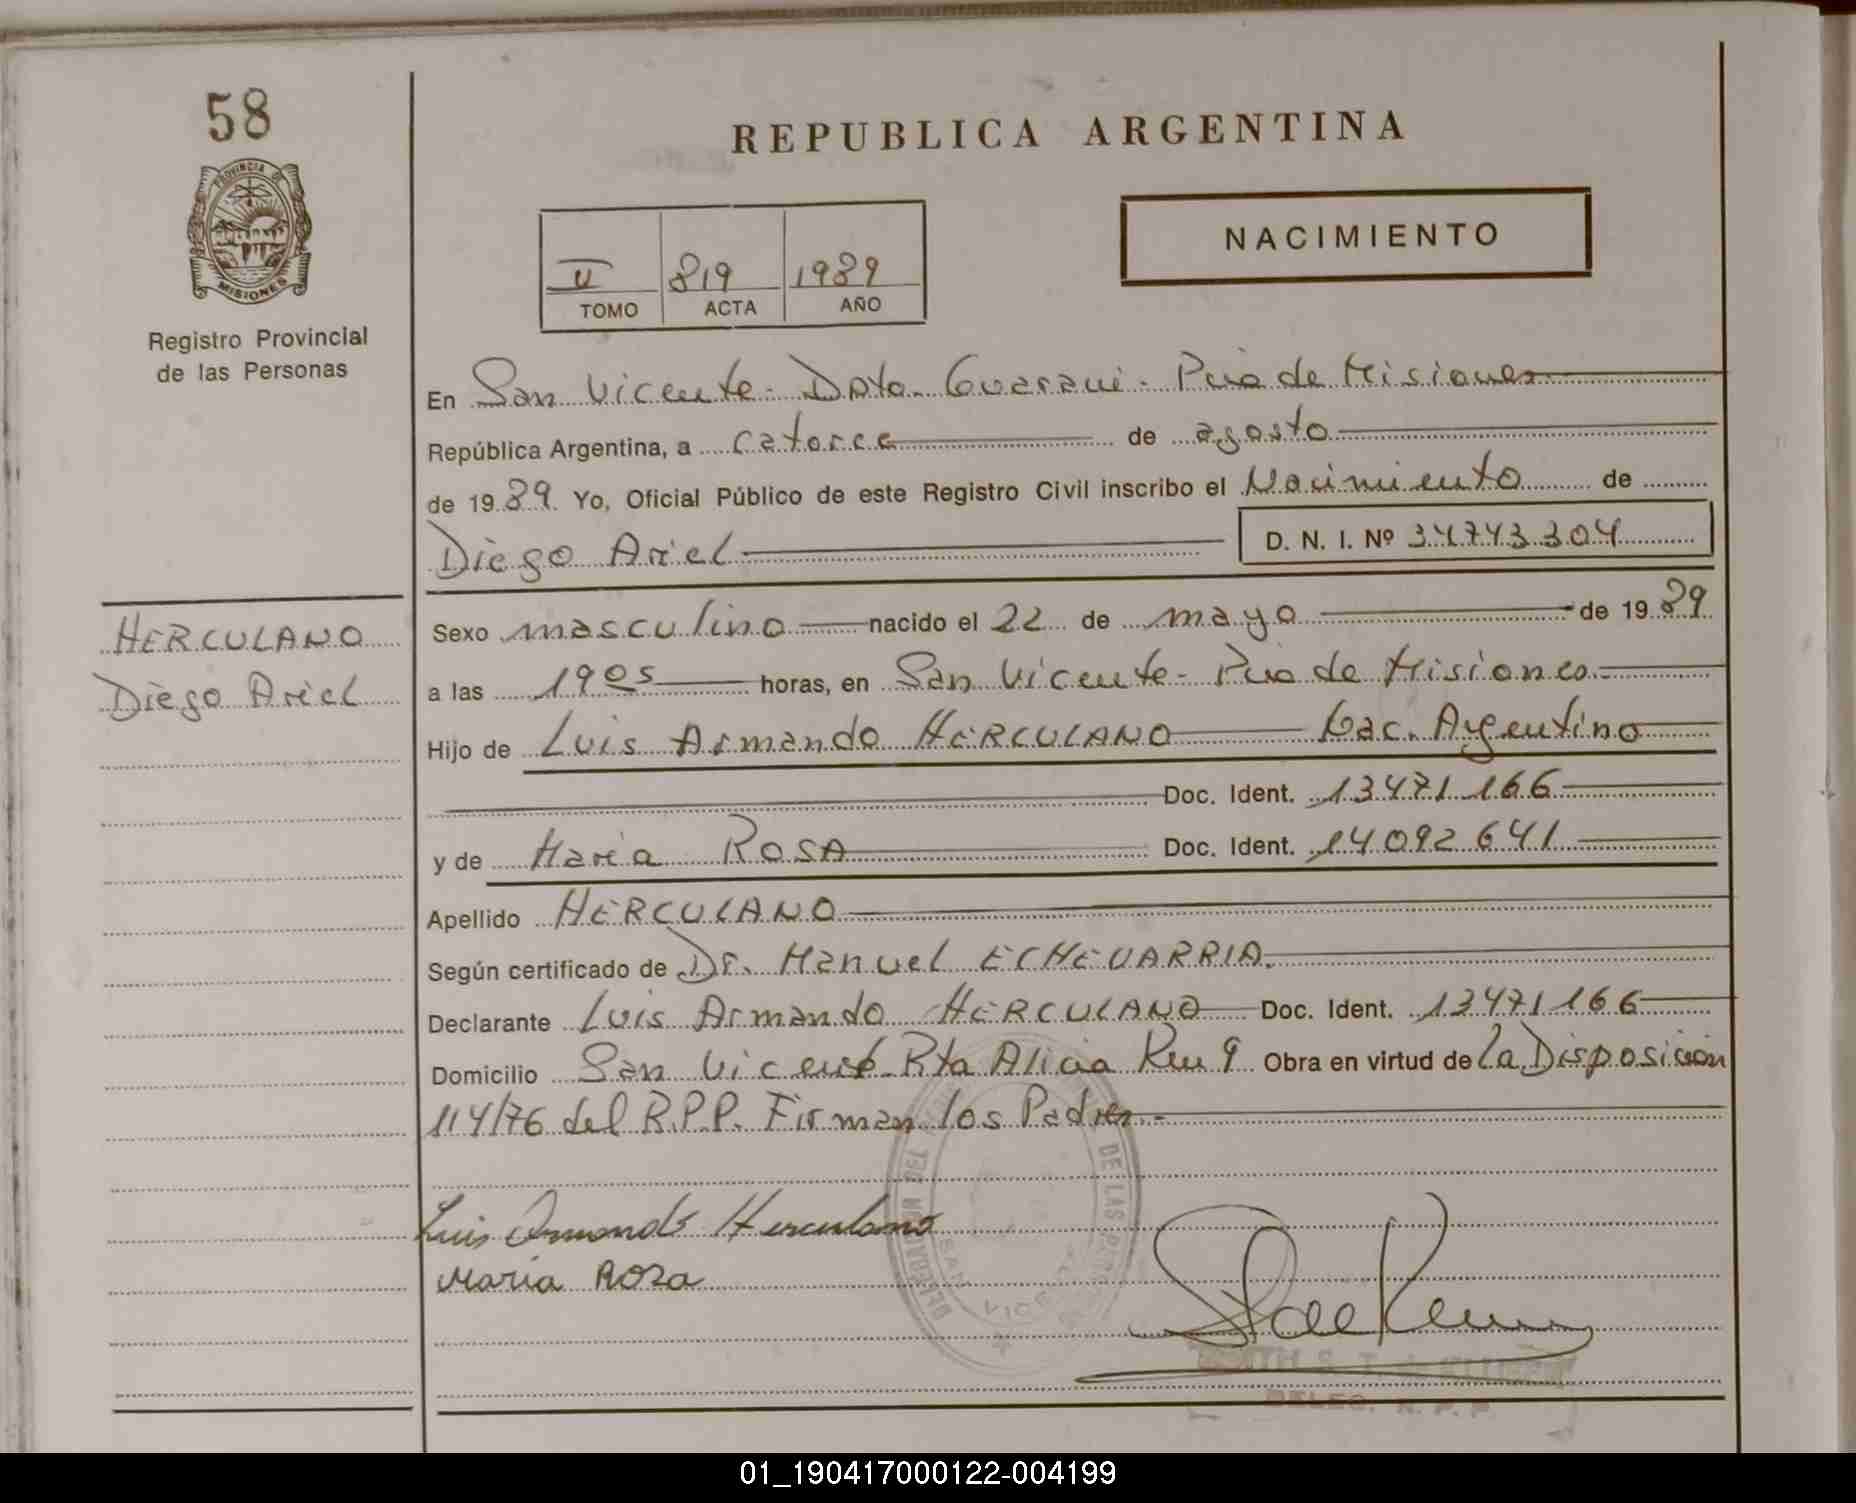 58
REPUBLICA ARGENTINA
PROVINCIA DE
MISIONES
Registro Provincial
de las Personas
II 819 1989
TOMO ACTA AÑO
NACIMIENTO
En San Vicente - Dpto. Guaraní - Pcia de Misiones
República Argentina, a catorce de agosto
de 1989. Yo, Oficial Público de este Registro Civil inscribo el Nacimiento de
Diego Ariel D. N. I. Nº 34743304
HERCULANO
Diego Ariel
Sexo masculino nacido el 22 de mayo de 1989
a las 1905 horas, en San Vicente - Pcia de Misiones.-
Hijo de Luis Armando HERCULANO Nac. Argentino
Doc. Ident. 13471166
y de Maria ROSA Doc. Ident. 14092641
Apellido HERCULANO
Según certificado de Dr. Manuel ECHEVARRIA.
Declarante Luis Armando HERCULANO Doc. Ident. 13471166
Domicilio San Vicente Pta Alicia Km 9 Obra en virtud de La Disposición
114/76 del R.P.P. Firman los Padres.-
Luis Armando Herculano
Maria Rosa
DE LAS
SAN VICENTE
DELEG. R. P. P.
01_190417000122-004199